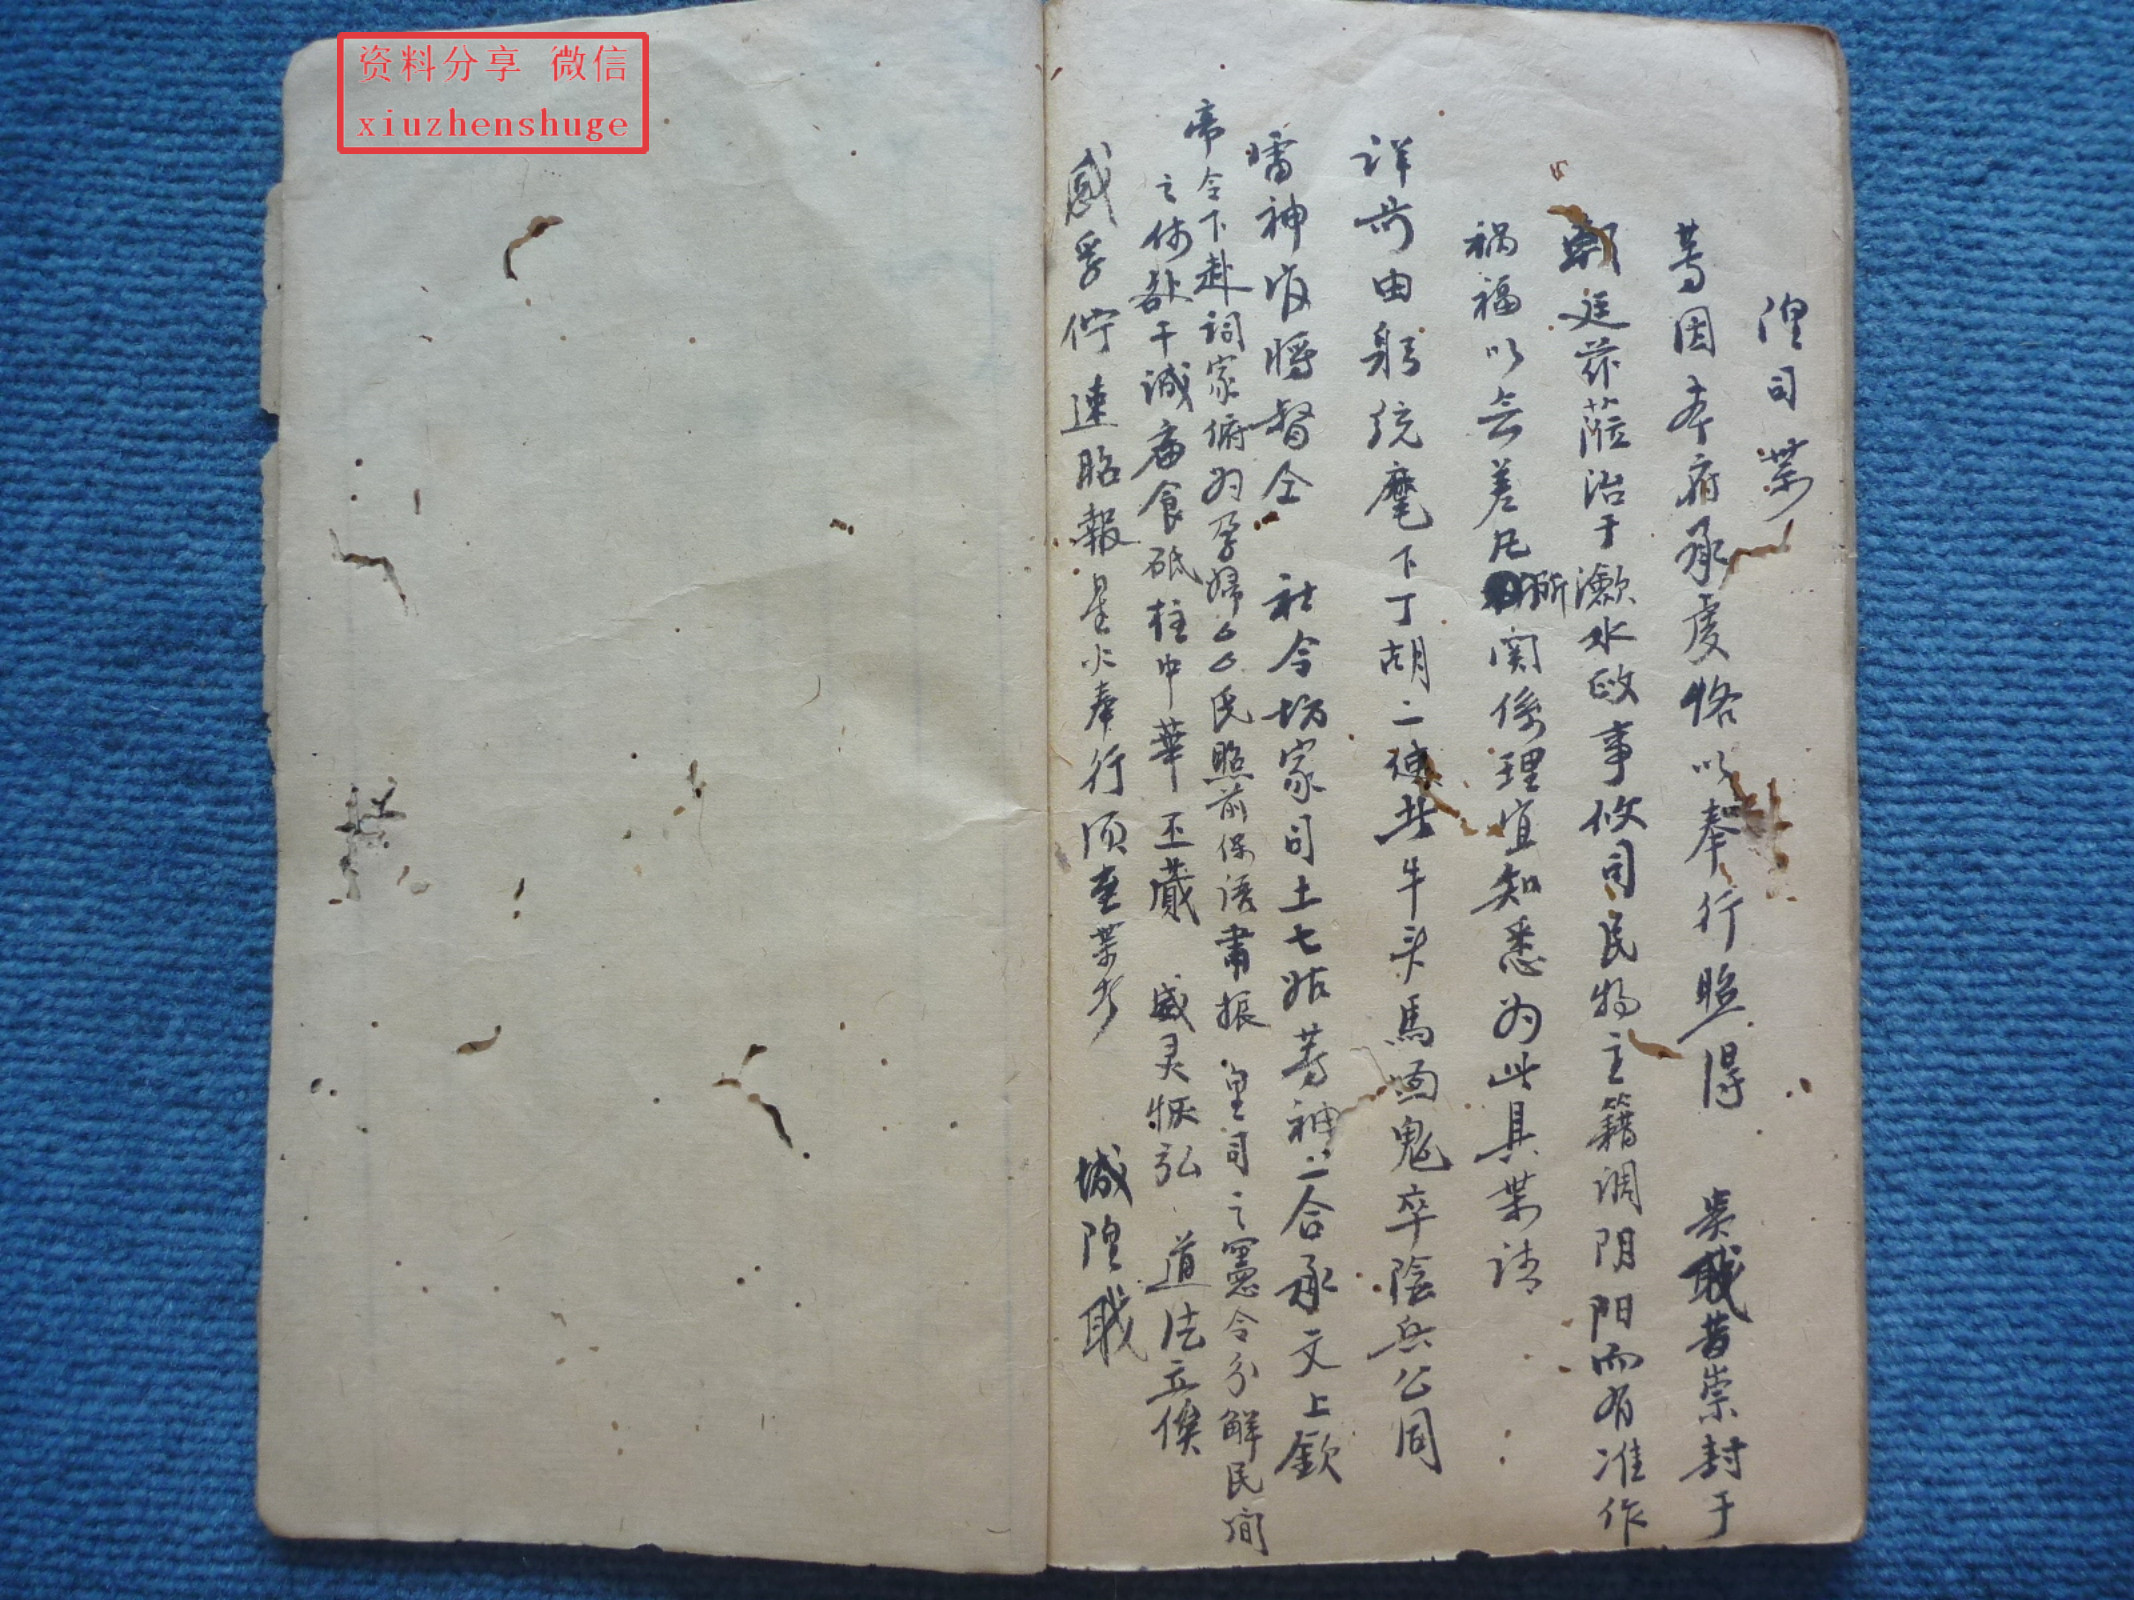 资料分享 微信
xiuzhenshuge
隍司 業
荨因本府承虔恪以奉行照得 貴職昔崇封于
朝廷茲蒞治于漵水政事攸司民物主籍调阴阳而有准作
祸福以无差凡所関係理宜知悉为此具業请
详前由躬统麾下丁胡二使并牛头馬面鬼卒陰兵公同
神将督仝 社令坊家司土七姑荨神合承文上欽
帝令下赴词家俯为孕婦厶厶氏照前保语肃振皇司之憲令分解民间
之 干誠 食砥柱中華丕蔵 威灵恢弘 道法立俟
感孚佇速昭報星火奉行须至業者 城隍職